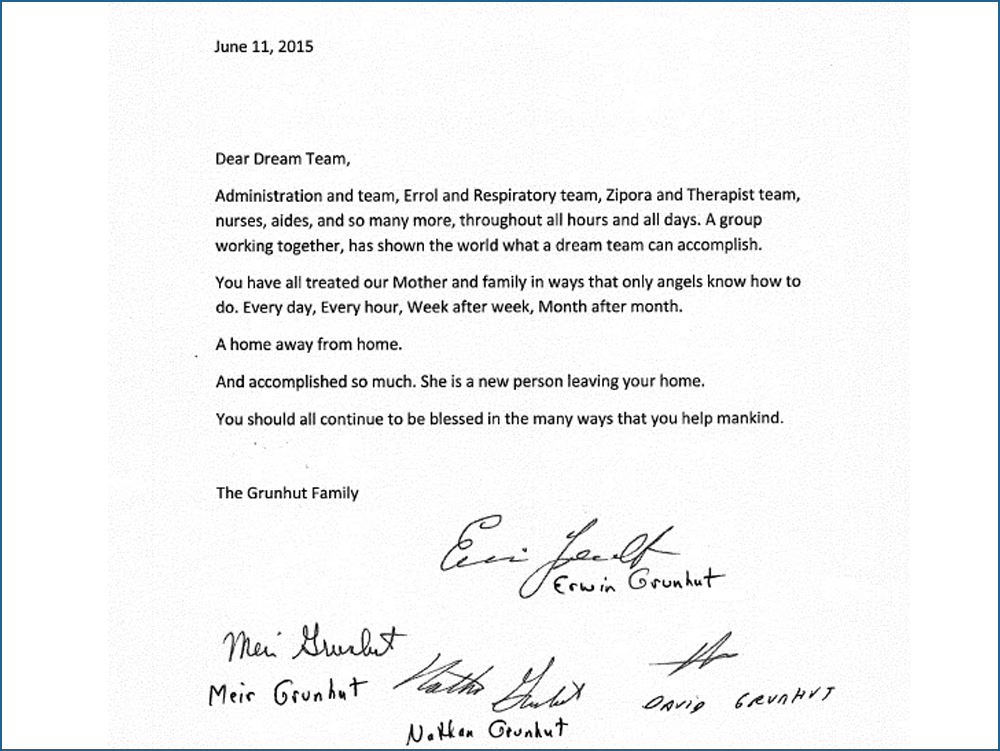 June 11, 2015
Dear Dream Team,
Administration and team, Errol and Respiratory team, Zipora and Therapist team,
nurses, aides, and so many more, throughout all hours and all days. A group
working together, has shown the world what a dream team can accomplish.
You have all treated our Mother and family in ways that only angels know how to
do. Every day, Every hour, Week after week, Month after month.
A home away from home.
And accomplished so much. She is a new person leaving your home.
You should all continue to be blessed in the many ways that you help mankind.
The Grunhut Family
Erwin Grunhut
Meir Grunhut
Nathan Grunhut
DAVID GRUNHUT